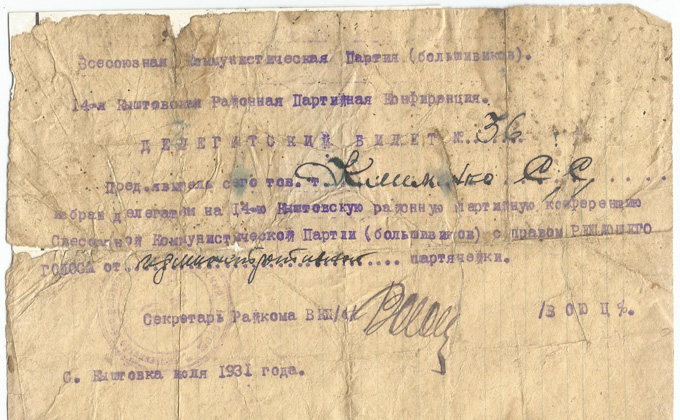 Всесоюзная Коммунистическая Партия (большивиков).
14-я Кыштовская Районная Партийная Конференция.
ДЕЛЕГАТСКИЙ БИЛЕТ №. 36
Пред,явитель сего тов. т. Клименко С. С.
избран делегатом на 14-ю Кыштовскую районную партийную конференцию
Всесоюзной Коммунистической Партии (большивиков) с правом РЕШАЮЩЕГО
ГОЛОСА от партячейки.
Секретарь Райкома ВКП/б/ /ВОЮЦ
С. Кыштовка июля 1931 года.